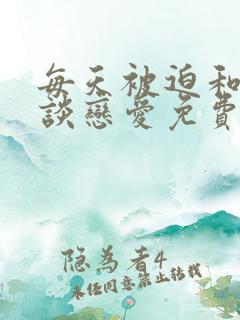 每天被迫和
談戀愛免費
隐為者4
未经同意禁止转载